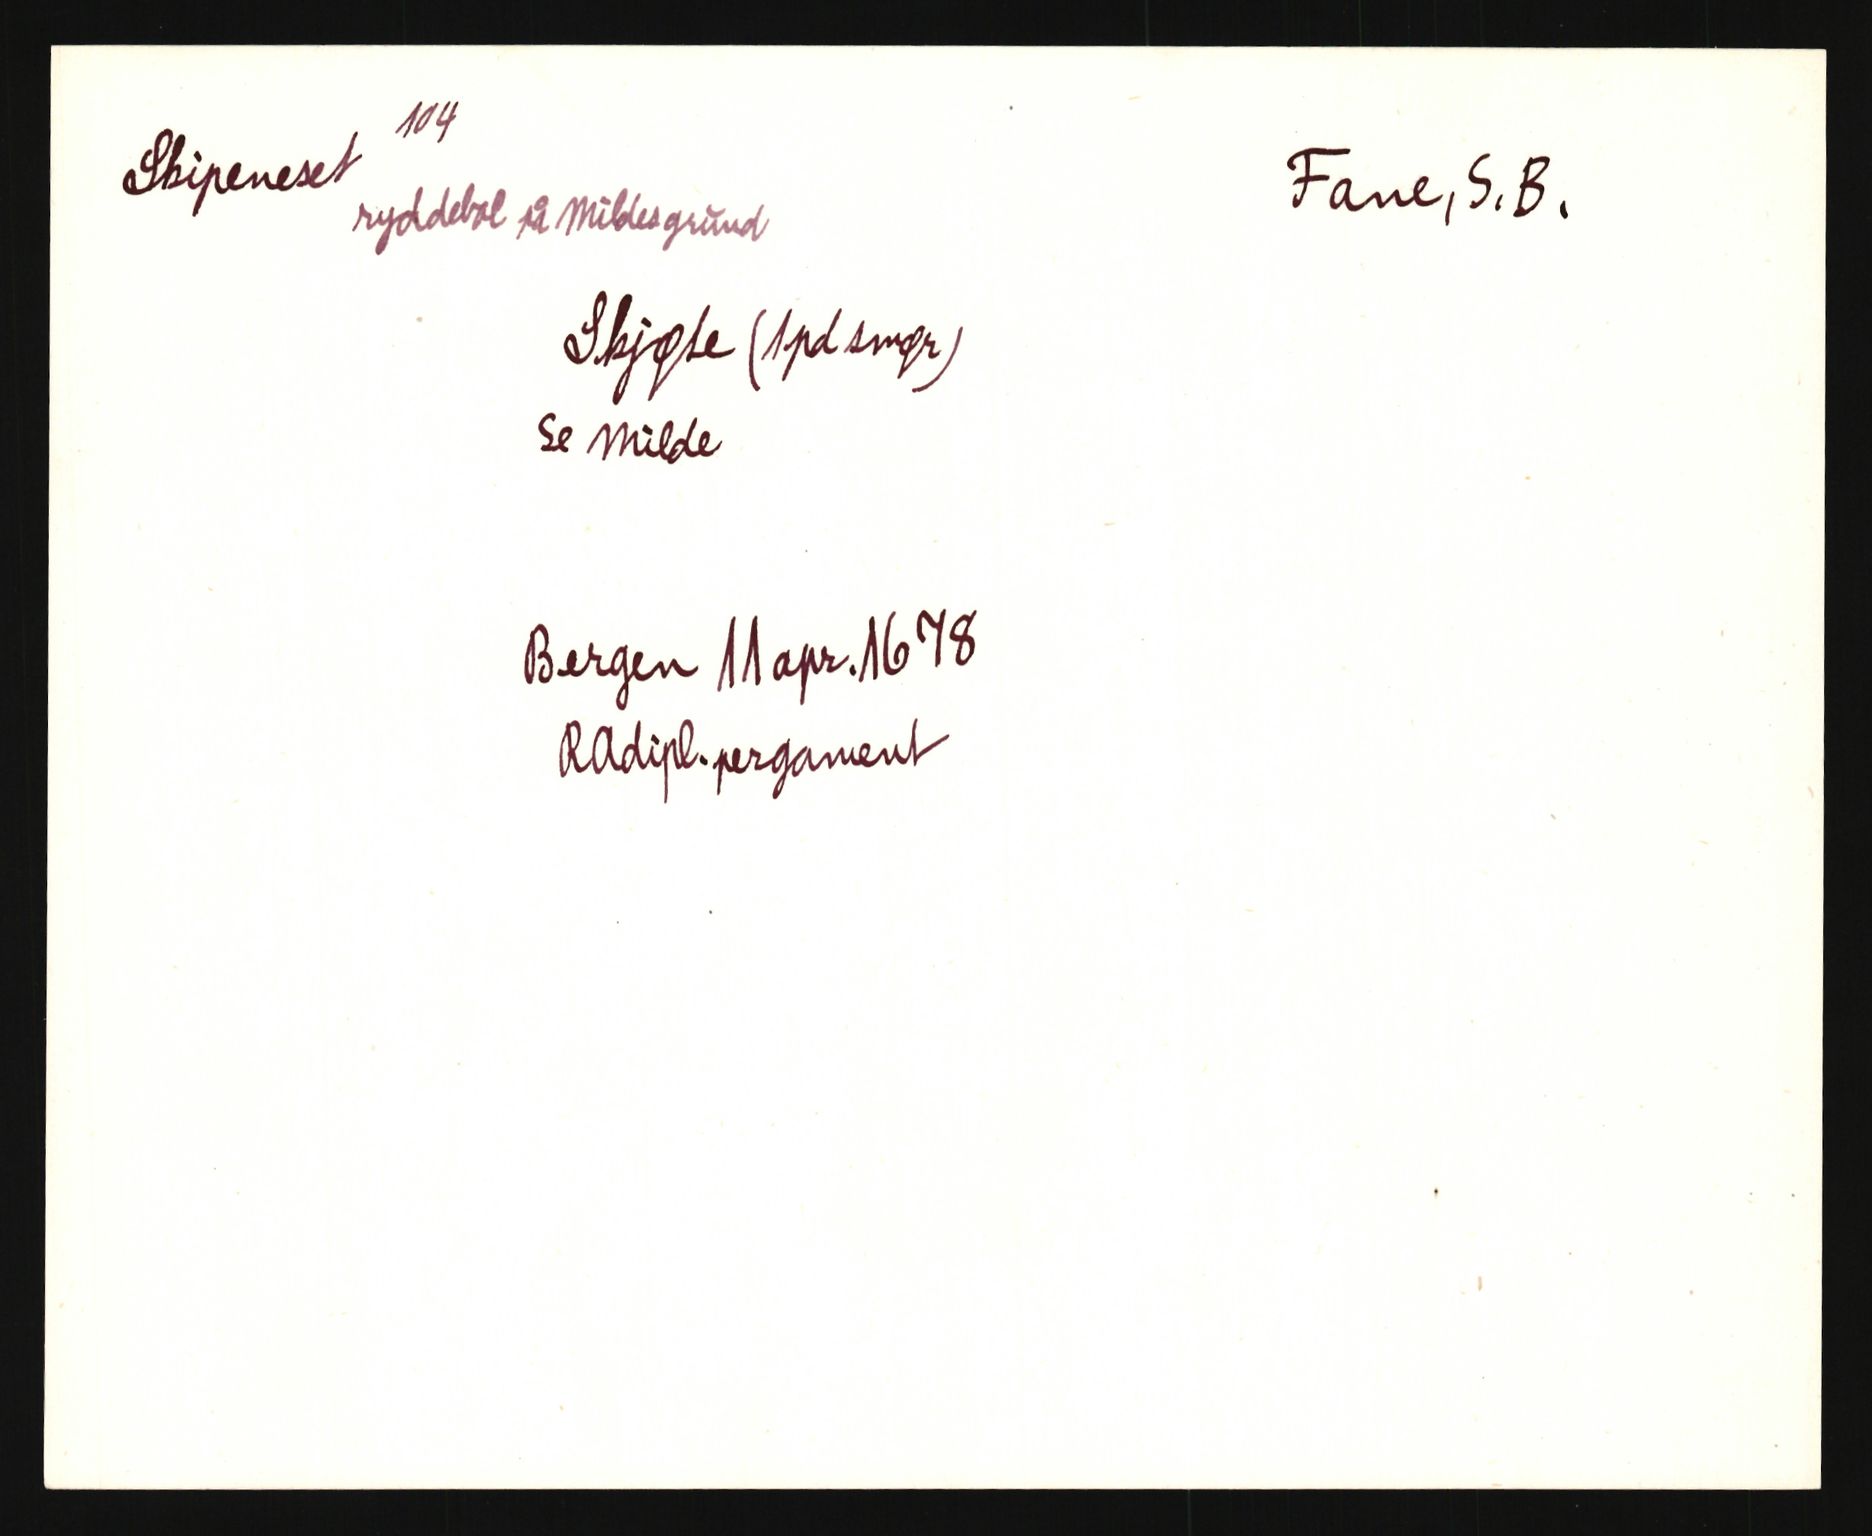 Skipeneset 104
Fane, S.B.
ryddebol på Mildesgrund
Skjøte (1 pd smør)
Se Milde
Bergen 11 apr. 1678
RAdipl. pergament